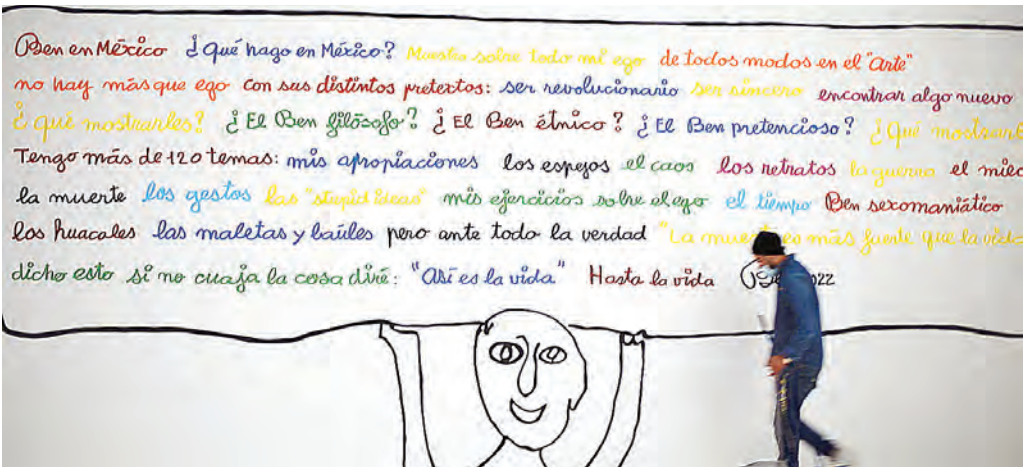 Ben en México ¿qué hago en México? Muestro sobre todo mi ego de todos modos en el "arte"
no hay más que ego con sus distintos pretextos: ser revolucionario ser sincero encontrar algo nuevo
¿qué mostrarles? ¿El Ben filósofo? ¿El Ben étnico? ¿El Ben pretencioso? ¿Qué
Tengo más de 120 temas: mis apropiaciones los espejos el caos los retratos la guerra el
la muerte los gestos las "stupid ideas" mis ejercicios sobre el ego el tiempo Ben sexomaniático
los huacales las maletas y baúles pero ante todo la verdad "La es más fuerte que la
dicho esto si no cuaja la cosa diré: "Así es la vida" Hasta la vida